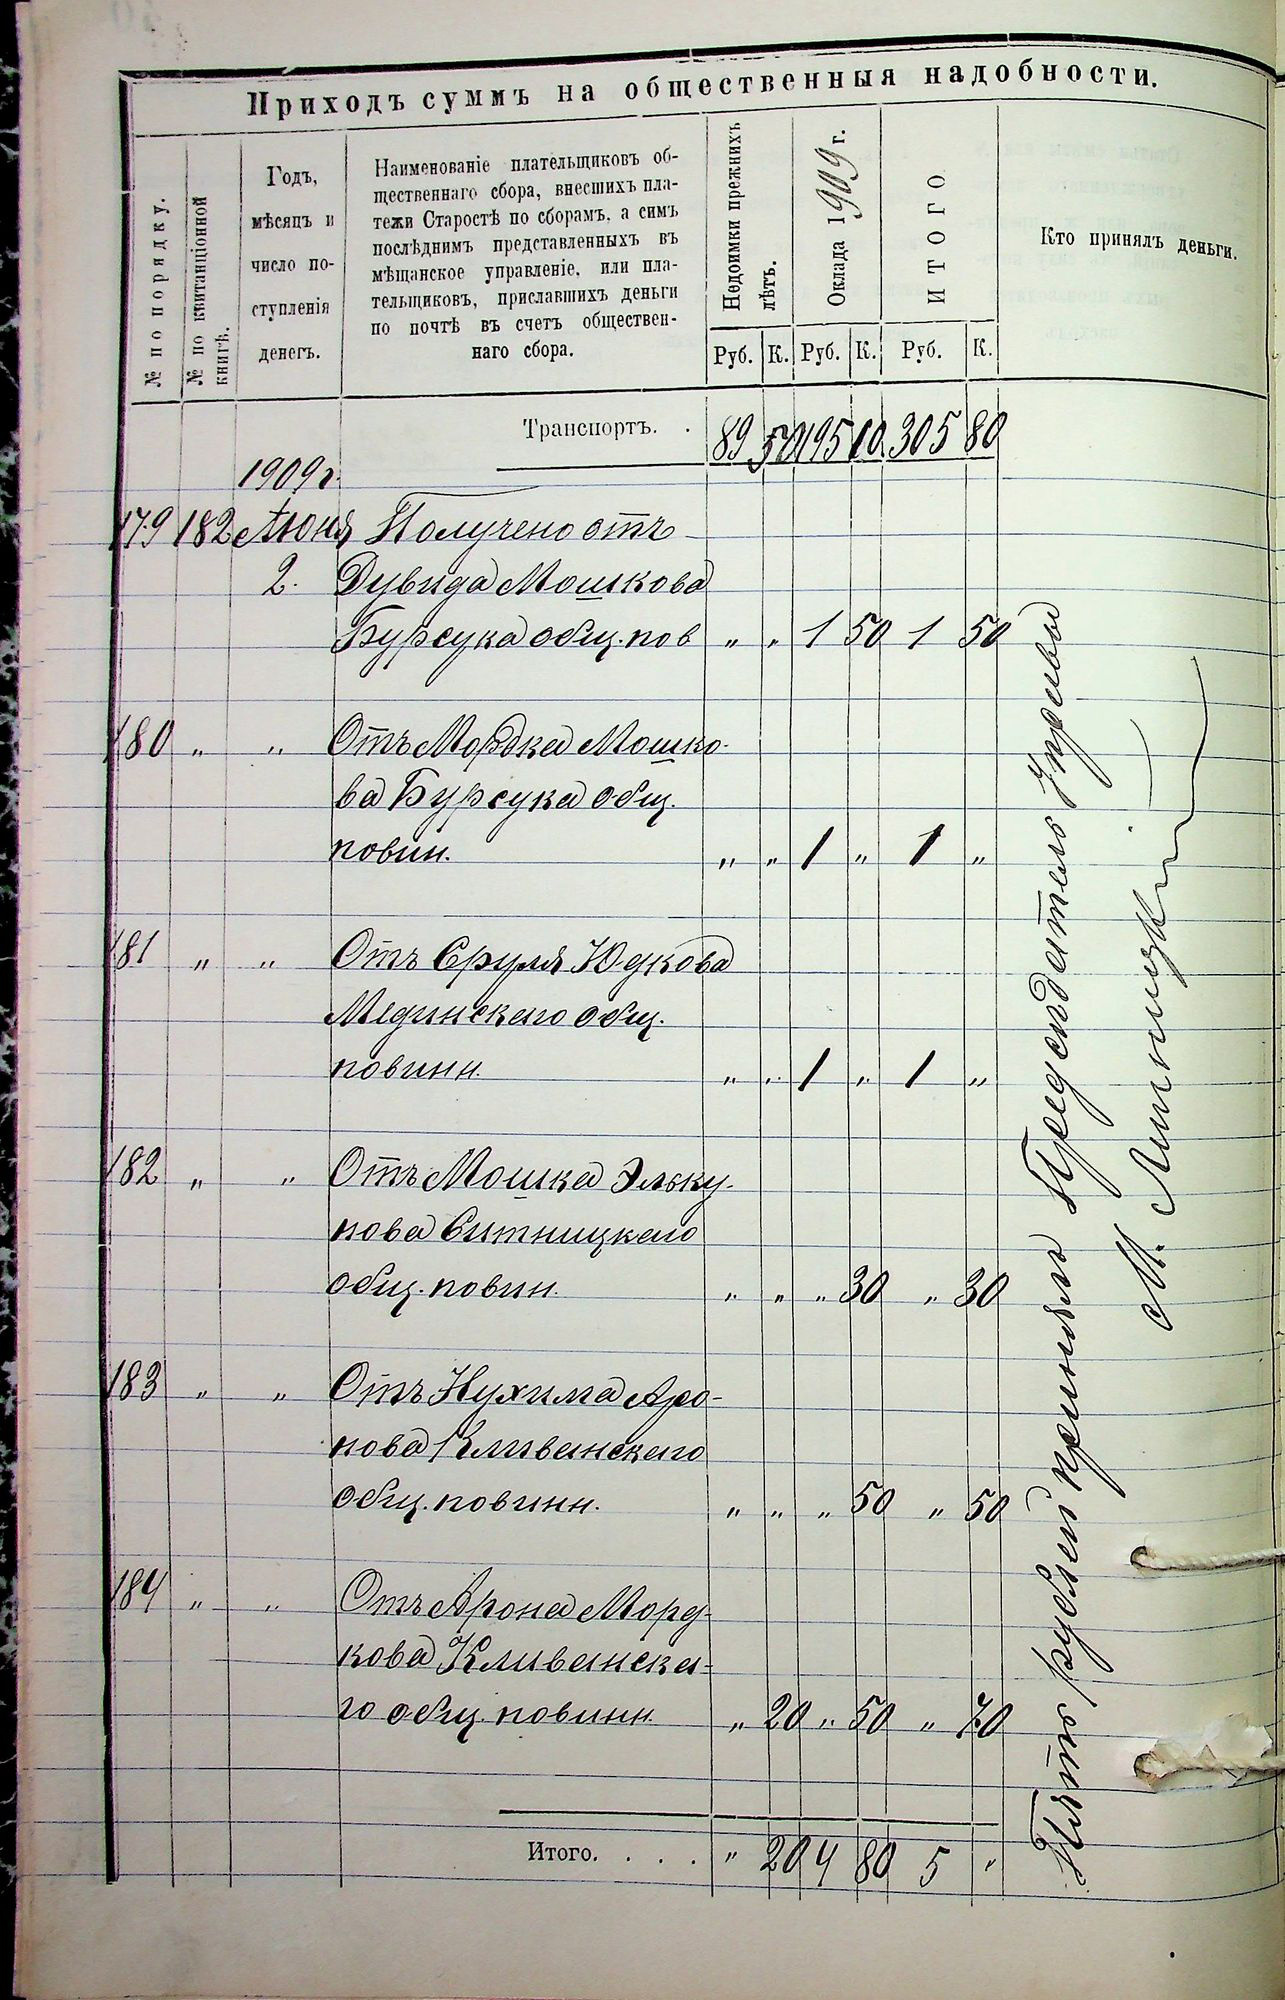 Приходъ суммъ на общественныя надобности.
№ по порядку.
№ по квитанціонной книгѣ.
Годъ,
мѣсяцъ и
число по-
ступленія
денегъ.
Наименованіе плательщиковъ об-
щественнаго сбора, внесшихъ пла-
тежи Старостѣ по сборамъ, а симъ
послѣднимъ представленныхъ въ
мѣщанское управленіе, или пла-
тельщиковъ, приславшихъ деньги
по почтѣ въ счетъ обществен-
наго сбора.
Недоимки прежнихъ лѣтъ.
Оклада 1909 г.
ИТОГО
Кто принялъ деньги.
Руб. К. Руб. К. Руб. К.
Транспортъ. . 89 50 195 10 305 80
1909 г.
179 182 Іюня Получено отъ
2. Дувида Мошкова
Бурсука общ. пов „ „ 1 50 1 50
180 „ „ Отъ Мордка Мошко-
ва Бурсука общ.
повин. „ „ 1 „ 1 „
181 „ „ Отъ Сруля Юдкова
Мединскаго общ.
повинн. „ „ 1 „ 1 „
182 „ „ Отъ Мошка Эльку-
нова Ситницкаго
общ. повин. „ „ „ 30 „ 30
183 „ „ Отъ Нухима Аро-
нова Кливанскаго
общ. повинн. „ „ „ 50 „ 50
184 „ „ Отъ Арона Морд-
кова Кливанска-
го общ. повинн. „ 20 „ 50 „ 70
Итого. . . . . „ 20 4 80 5 „
Пять рублей принялъ Предсѣдатель Управы
М.